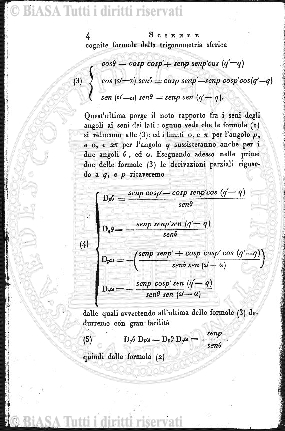 © BiASA Tutti i diritti riservati
4
cognite formule della trigonometria sferica
cosθ = cosp cosp′ + senp senp′cos (q′—q)
(3) cos (ω′—ω) senθ = cosp senp′ — senp cosp′cos(q′—q)
sen (ω′—ω) senθ = senp sen (q′—q).
Quest'ultima porge il noto rapporto fra i seni degli
angoli ai seni dei lati: ognun vede che le formole (2)
si riducono alle (3); ed i limiti 0, e π per l'angolo p,
e 0, e 2π per l'angolo q sussisteranno anche per i
due angoli θ, ed ω. Eseguendo adesso nelle prime
due delle formole (3) le derivazioni parziali rigua-
do a q, e p ricaveremo
senp cosp′ — cosp senp′cos (q′—q)
senθ
senp senp′sen (q′—q)
senθ
(4)
senp senp′ + cosp cosp′ cos (q′—q)
senθ sen (ω′—ω)
senp cosp′ sen (q′—q)
senθ sen (ω′—ω)
dalle quali avvertendo all'ultima delle formole (3) de-
durremo con gran facilità
(5)
senp
senθ
quindi dalle formole (2)
© BiASA Tutti i diritti riservati